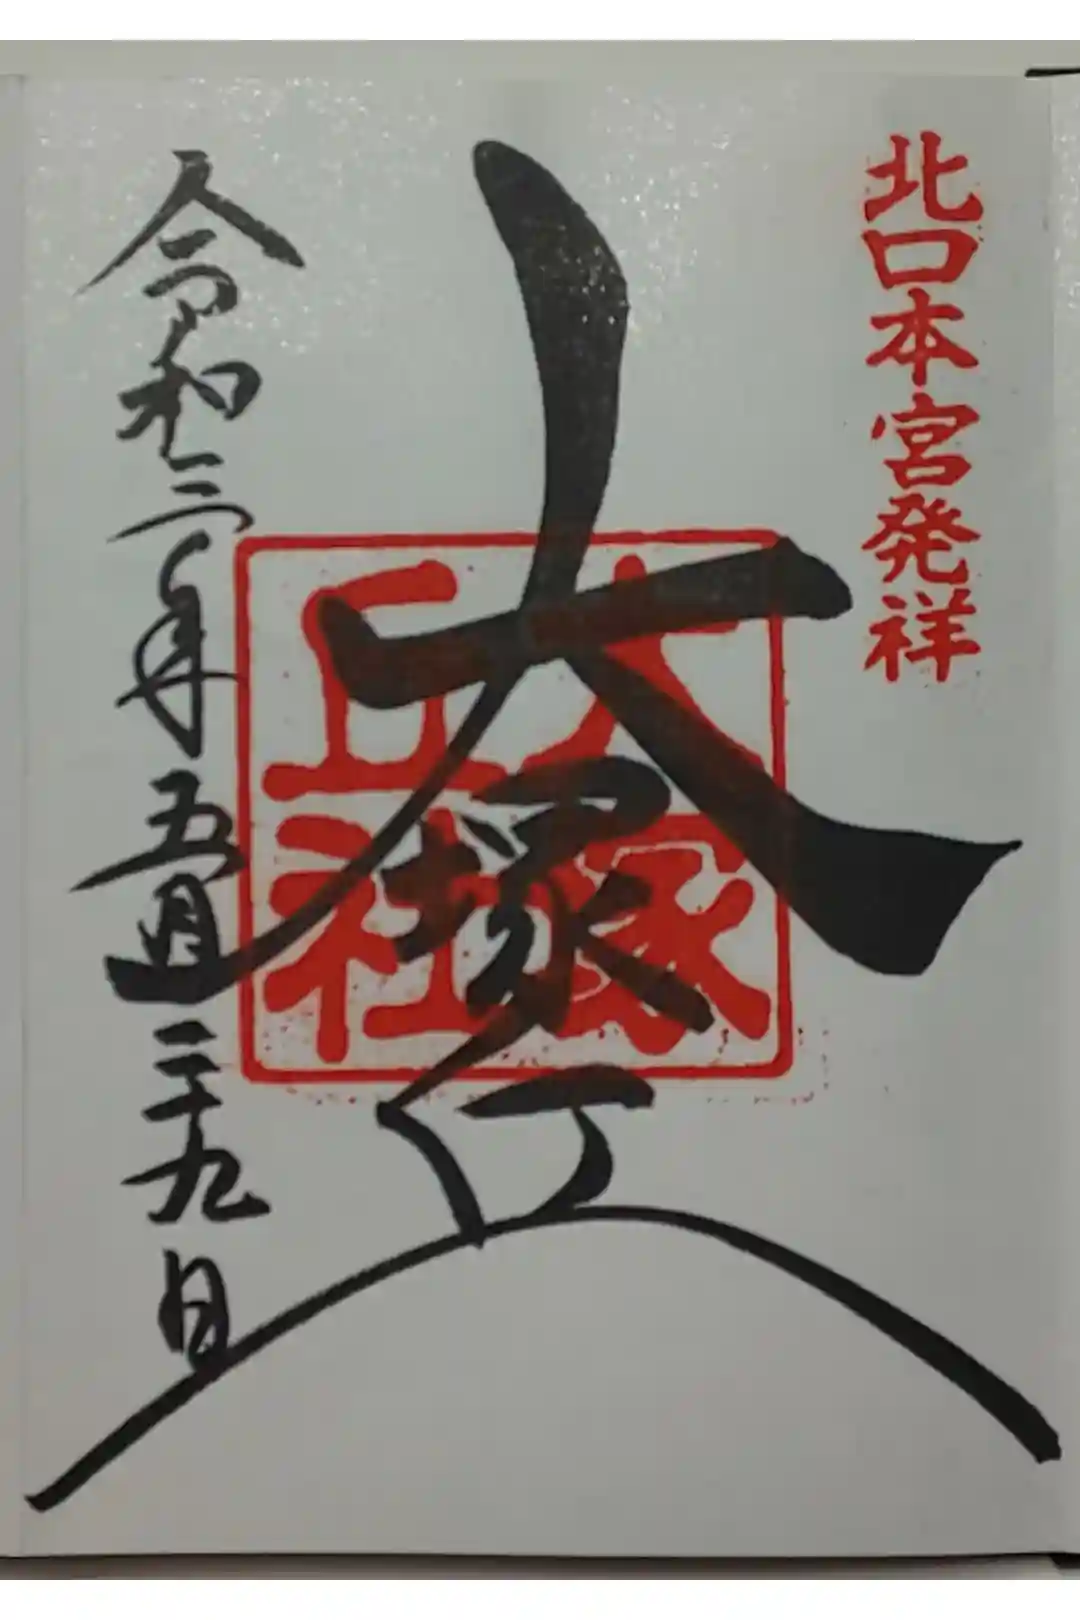 北口本宮発祥
大塚丘
大塚丘社
令和三年五月二十九日